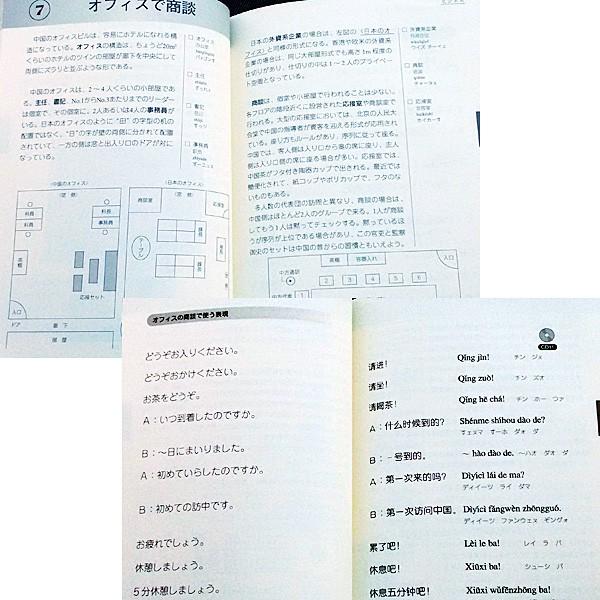 7
オフィスで商談
中国のオフィスビルは、容易にホテルになれる構
造になっている。オフィスの構造は、ちょうど20m²
くらいのホテルのツインの部屋が廊下を中央にして
両側にズラリと並ぶような形である。
中国のオフィスは、2〜4人くらいの小部屋であ
る。主任、書記、No.1からNo.3あたりまでのリーダー
は個室で、その個室に、2人あるいは4人の事務員が
いる。日本のオフィスのように"田"の字型の机の
配置ではなく、"日"の字が壁の両側に分かれて配置
されていて、一方の側は窓と出入り口のドアが対に
なっている。
□ オフィス
□ 主任
□ 書記
□ 事務員
〈中国のオフィス〉
(窓 側)
科員
科長
科員
事務員
書棚
応接セット
入口
ドア
廊 下
部 屋
〈日本のオフィス〉
(窓 側)
商談室
応接
テーブル
課長
課長
入口
日本の外資系企業の場合は、左図の〈日本のオ
フィス〉と同様の形式になる。香港や欧米の外資系
企業の場合は、同じ大部屋形式でも高さ1m程度の
仕切りがあり、仕切りの中は1〜2人のプライベー
ト空間となっている。
商談は、個室や小部屋で行われることは少ない。
各フロアの階段近くに設営された応接室や商談室で
行われる。大型の応接室においては、北京の人民大
会堂で中国の指導者が賓客を迎える形式が応用され
ている。座り方もルールがあり、序列に従って座る。
中国では、客人側は入り口から奥の席に座り、主人
側は入り口側の席に座る場合が多い。応接室では、
中国茶がフタ付き陶磁カップで出される。最近では
簡便化されて、紙コップやポリカップで、フタのな
いものもある。
多人数の代表団の訪問と異なり、商談の場合は、
中国側はほとんど2人のグループで来る。1人が商談
してもう1人は黙ってチェックする。黙っているほ
うが序列が上位である場合があり、この官吏と監察
御史のセットは中国の昔からの習慣ともいえよう。
□ 外資系企業
□ 商談
□ 応接室
書棚
容器入れ
中方通訳
1 2 3 4 5 6
中方代表
入口
オフィスの商談で使う表現
どうぞお入りください。
どうぞおかけください。
お茶をどうぞ。
A:いつ到着したのですか。
B:〜日にまいりました。
A:初めていらしたのですか。
B:初めての訪中です。
お疲れでしょう。
休憩しましょう。
5分休憩しましょう。
CD11
请进! Qǐng jìn! チン ジン
请坐! Qǐng zuò! チン ズオ
请喝茶! Qǐng hē chá! チン ホー ツァ
A:什么时候到的? Shénme shíhou dào de?
B:〜号到的。 〜 hào dào de. 〜ハオ ダオ ダ
A:第一次来的吗? Dìyīcì lái de ma?
ディイーツ ライ ダマ
B:第一次访问中国。 Dìyīcì fǎngwèn zhōngguó.
ディイーツ ファンウェヌ ゾングゥオ
累了吧! Lèi le ba! レイ ラ バ
休息吧! Xiūxi ba! シューシ バ
休息五分钟吧! Xiūxi wǔfēnzhōng ba!